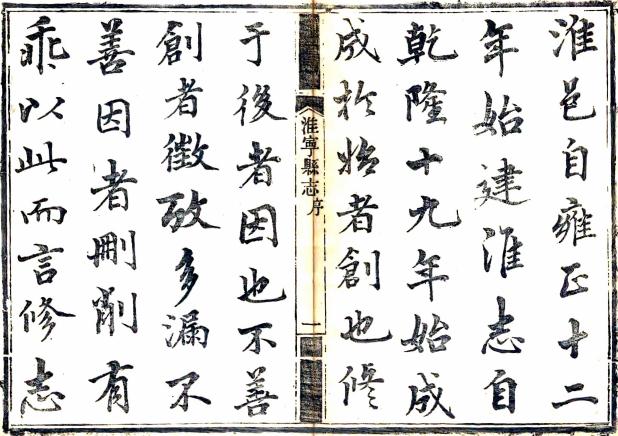 淮邑自雍正十二
年始建淮志自
乾隆十九年始成
成於始者創也修
淮寧縣志序
一
于後者因也不善
創者徵攷多漏不
善因者刪削有
乖以此而言修志